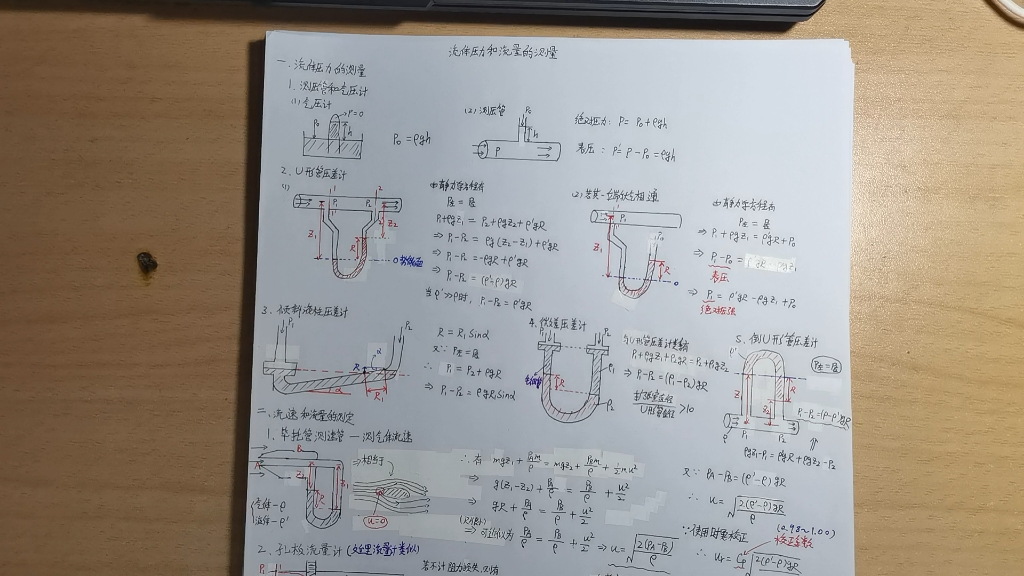 流体压力和流量的测量
一.流体压力的测量
1.测压管和气压计
(1)气压计
P=0
P₀
h
P₀=ρgh
(2)测压管
P₀
h
P
绝对压力: P=P₀+ρgh
表压: P'=P-P₀=ρgh
2.U形管压差计
(1)
1
2
P₁
P₂
Z₁
Z₂
R
0
由静力学方程有
P左=P右
P₁+ρgZ₁=P₂+ρgZ₂+ρ'gR
⇒P₁-P₂=ρg(Z₂-Z₁)+ρ'gR
⇒P₁-P₂=-ρgR+ρ'gR
⇒P₁-P₂=(ρ'-ρ)gR
当ρ'≫ρ时, P₁-P₂=ρ'gR
(2)若其一端状气相通
P₁
P₀
Z₁
R
0
由静力学方程有
P左=P右
⇒P₁+ρgZ₁=ρ'gR+P₀
⇒P₁-P₀=ρ'gR-ρgZ₁
表压
⇒P₁=ρ'gR-ρgZ₁+P₀
绝对压强
3.倾斜液柱压差计
P₁
P₂
R
α
R₁
α
R=R₁sinα
又∵P左=P右
∴P₁=P₂+ρgR
⇒P₁-P₂=ρgR₁sinα
4.微差压差计
P₁
P₂
R
ρ₁
ρ₂
与U形管压差计类似
⇒P₁-P₂=(ρ₁-ρ₂)gR
扩张室直径
U形管直径 >10
5.倒U形管压差计
ρ'
P左=P右
Z₁
R
Z₂
ρ
P₁
P₂
P₁-P₂=(ρ-ρ')gR
⇑
ρgZ₁-P₁=ρgR+ρgZ₂-P₂
二.流速和流量的测定
1.毕托管测速管—测气体流速
R
气体-ρ
液体-ρ'
⇒相当于
u=0
∴有 mgZ₁+PAm/ρ=mgZ₂+PBm/ρ+½mu²
⇒g(Z₁-Z₂)+PA/ρ=PB/ρ+u²/2
⇒gR+PA/ρ=PB/ρ+u²/2
(R很小)
⇒可近似为 PA/ρ=PB/ρ+u²/2
⇒u=√(2(PA-PB)/ρ)
又∵PA-PB=(ρ'-ρ)gR
∴u=√(2(ρ'-ρ)gR/ρ)
∵使用时要校正
(0.98~1.00)
校正系数
∴ur=Cp√(2(ρ'-ρ)gR
2.孔板流量计(文丘里流量计类似)
若不计阻力损失,则有